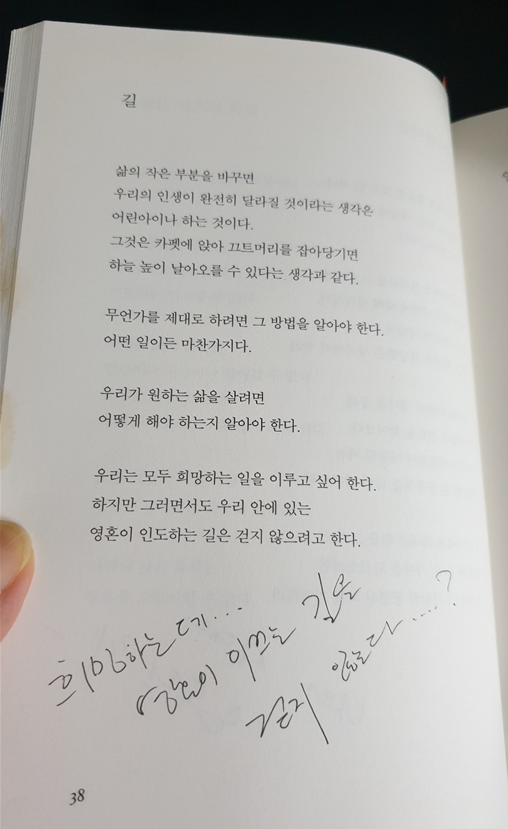 길
삶의 작은 부분을 바꾸면
우리의 인생이 완전히 달라질 것이라는 생각은
어린아이나 하는 것이다.
그것은 카펫에 앉아 끄트머리를 잡아당기면
하늘 높이 날아오를 수 있다는 생각과 같다.
무언가를 제대로 하려면 그 방법을 알아야 한다.
어떤 일이든 마찬가지다.
우리가 원하는 삶을 살려면
어떻게 해야 하는지 알아야 한다.
우리는 모두 희망하는 일을 이루고 싶어 한다.
하지만 그러면서도 우리 안에 있는
영혼이 인도하는 길은 걷지 않으려고 한다.
희망하는데...
영혼의 이끄는 길을
걷지 않는다....?
38